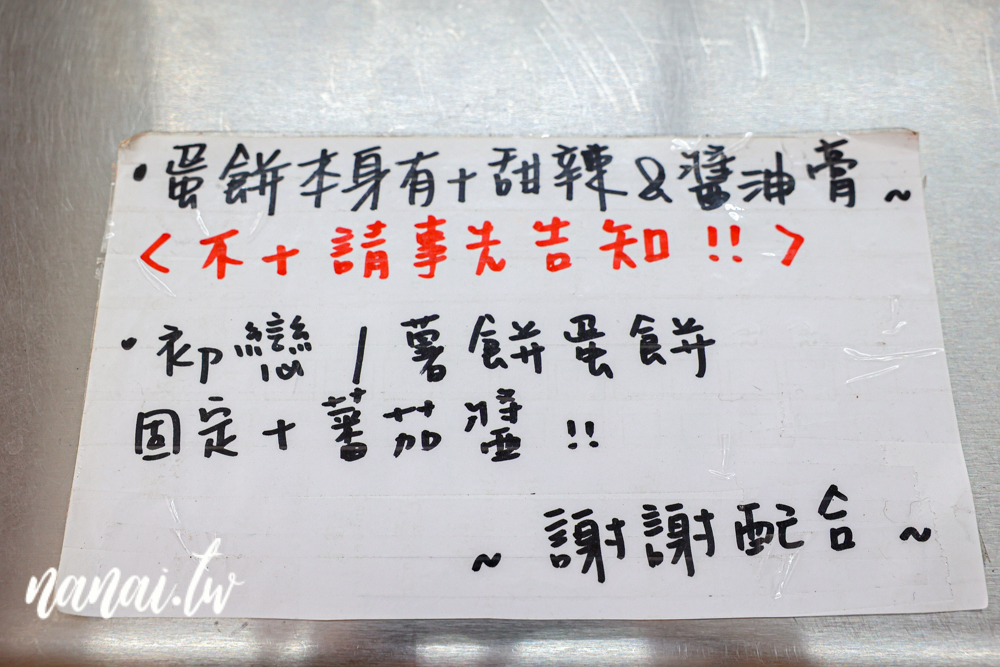 ·蛋餅本身有+甜辣&醬油膏~
<不+請事先告知!!>
·初戀/薯餅蛋餅
固定+蕃茄醬!!
~謝謝配合~
nanai.tw